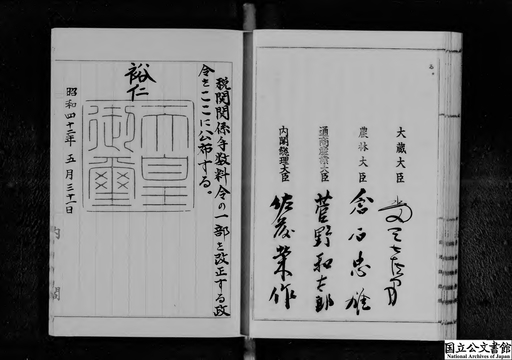 大蔵大臣 水田三喜男
農林大臣 倉石忠雄
通商産業大臣 菅野和太郎
内閣総理大臣 佐藤栄作
税関関係手数料令の一部を改正する政
令をここに公布する。
裕仁
天皇
御璽
昭和四十二年五月三十一日
内閣
国立公文書館
National Archives of Japan